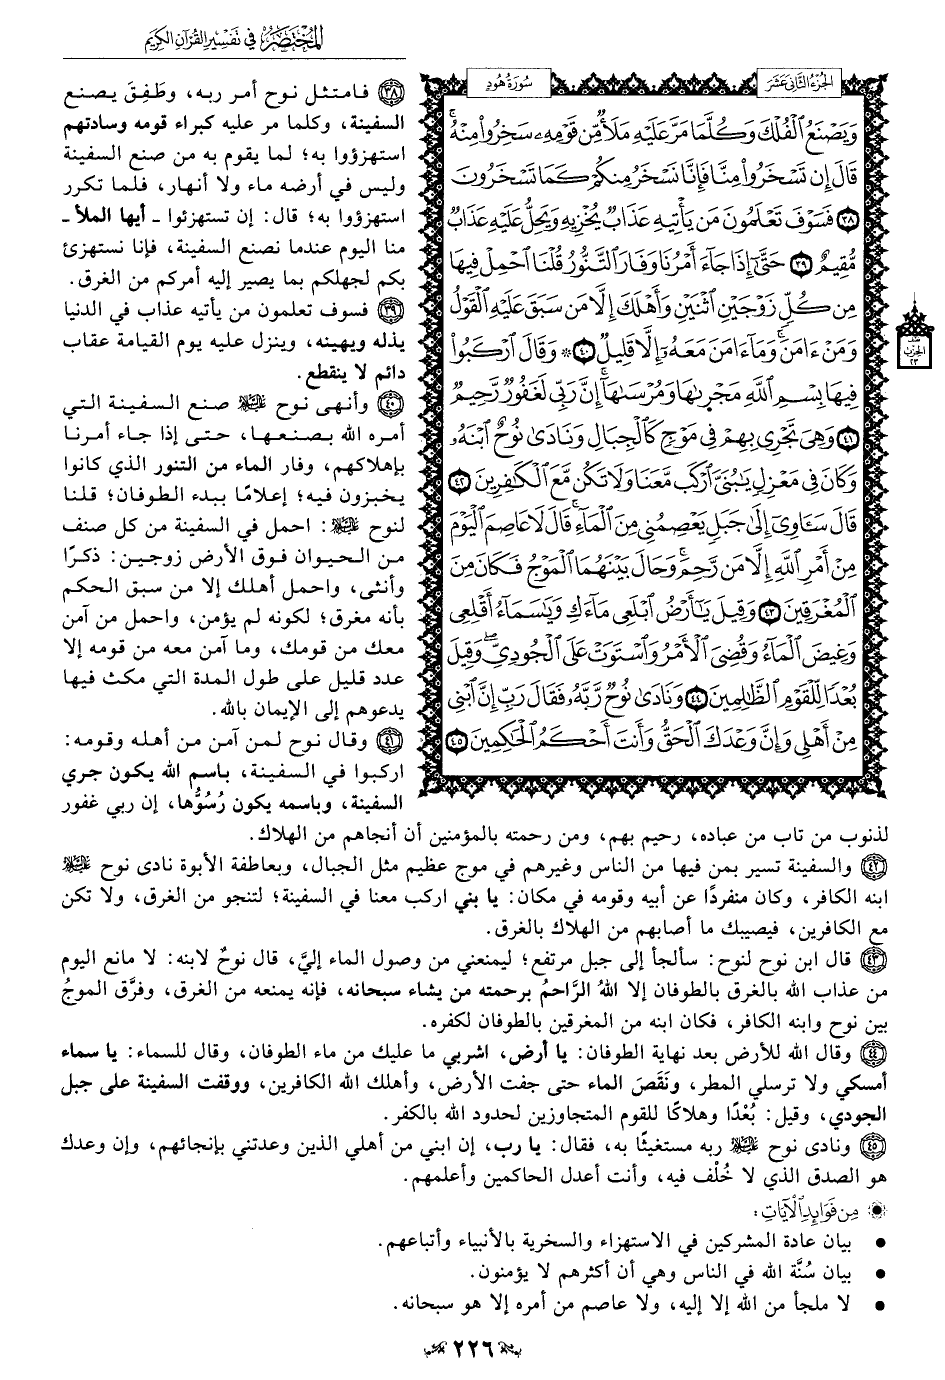 المختصر في تفسير القرآن الكريم
الجزء الثاني عشر
سورة هود
وَيَصْنَعُ ٱلْفُلْكَ وَكُلَّمَا مَرَّ عَلَيْهِ مَلَأٌ مِّن قَوْمِهِۦ سَخِرُوا۟ مِنْهُ ۚ
قَالَ إِن تَسْخَرُوا۟ مِنَّا فَإِنَّا نَسْخَرُ مِنكُمْ كَمَا تَسْخَرُونَ
٣٨ فَسَوْفَ تَعْلَمُونَ مَن يَأْتِيهِ عَذَابٌ يُخْزِيهِ وَيَحِلُّ عَلَيْهِ عَذَابٌ
مُّقِيمٌ ٣٩ حَتَّىٰٓ إِذَا جَآءَ أَمْرُنَا وَفَارَ ٱلتَّنُّورُ قُلْنَا ٱحْمِلْ فِيهَا
مِن كُلٍّ زَوْجَيْنِ ٱثْنَيْنِ وَأَهْلَكَ إِلَّا مَن سَبَقَ عَلَيْهِ ٱلْقَوْلُ
وَمَنْ ءَامَنَ ۚ وَمَآ ءَامَنَ مَعَهُۥٓ إِلَّا قَلِيلٌ ٤٠ ۞ وَقَالَ ٱرْكَبُوا۟
فِيهَا بِسْمِ ٱللَّهِ مَجْر۪ىٰهَا وَمُرْسَىٰهَآ ۚ إِنَّ رَبِّى لَغَفُورٌ رَّحِيمٌ
٤١ وَهِىَ تَجْرِى بِهِمْ فِى مَوْجٍ كَٱلْجِبَالِ وَنَادَىٰ نُوحٌ ٱبْنَهُۥ
وَكَانَ فِى مَعْزِلٍ يَـٰبُنَىَّ ٱرْكَب مَّعَنَا وَلَا تَكُن مَّعَ ٱلْكَـٰفِرِينَ ٤٢
قَالَ سَـَٔاوِىٓ إِلَىٰ جَبَلٍ يَعْصِمُنِى مِنَ ٱلْمَآءِ ۚ قَالَ لَا عَاصِمَ ٱلْيَوْمَ
مِنْ أَمْرِ ٱللَّهِ إِلَّا مَن رَّحِمَ ۚ وَحَالَ بَيْنَهُمَا ٱلْمَوْجُ فَكَانَ مِنَ
ٱلْمُغْرَقِينَ ٤٣ وَقِيلَ يَـٰٓأَرْضُ ٱبْلَعِى مَآءَكِ وَيَـٰسَمَآءُ أَقْلِعِى
وَغِيضَ ٱلْمَآءُ وَقُضِىَ ٱلْأَمْرُ وَٱسْتَوَتْ عَلَى ٱلْجُودِىِّ ۖ وَقِيلَ
بُعْدًا لِّلْقَوْمِ ٱلظَّـٰلِمِينَ ٤٤ وَنَادَىٰ نُوحٌ رَّبَّهُۥ فَقَالَ رَبِّ إِنَّ ٱبْنِى
مِنْ أَهْلِى وَإِنَّ وَعْدَكَ ٱلْحَقُّ وَأَنتَ أَحْكَمُ ٱلْحَـٰكِمِينَ ٤٥
نصف
الحزب
٢٣
٣٨ فامتثل نوح أمر ربه، وطَفِقَ يصنع
السفينة، وكلما مر عليه كبراء قومه وسادتهم
استهزؤوا به؛ لما يقوم به من صنع السفينة
وليس في أرضه ماء ولا أنهار، فلما تكرر
استهزؤوا به؛ قال: إن تستهزئوا ـ أيها الملأ ـ
منا اليوم عندما نصنع السفينة، فإنا نستهزئ
بكم لجهلكم بما يصير إليه أمركم من الغرق.
٣٩ فسوف تعلمون من يأتيه عذاب في الدنيا
يذله ويهينه، وينزل عليه يوم القيامة عقاب
دائم لا ينقطع.
٤٠ وأنهى نوح عليه السلام صنع السفينة التي
أمره الله بصنعها، حتى إذا جاء أمرنا
بإهلاكهم، وفار الماء من التنور الذي كانوا
يخبزون فيه؛ إعلامًا ببدء الطوفان؛ قلنا
لنوح عليه السلام: احمل في السفينة من كل صنف
من الحيوان فوق الأرض زوجين: ذكرًا
وأنثى، واحمل أهلك إلا من سبق الحكم
بأنه مغرق؛ لكونه لم يؤمن، واحمل من آمن
معك من قومك، وما آمن معه من قومه إلا
عدد قليل على طول المدة التي مكث فيها
يدعوهم إلى الإيمان بالله.
٤١ وقال نوح لمن آمن من أهله وقومه:
اركبوا في السفينة، باسم الله يكون جري
السفينة، وباسمه يكون رُسُوُّها، إن ربي غفور
لذنوب من تاب من عباده، رحيم بهم، ومن رحمته بالمؤمنين أن أنجاهم من الهلاك.
٤٢ والسفينة تسير بمن فيها من الناس وغيرهم في موج عظيم مثل الجبال، وبعاطفة الأبوة نادى نوح عليه السلام
ابنه الكافر، وكان منفردًا عن أبيه وقومه في مكان: يا بني اركب معنا في السفينة؛ لتنجو من الغرق، ولا تكن
مع الكافرين، فيصيبك ما أصابهم من الهلاك بالغرق.
٤٣ قال ابن نوح لنوح: سألجأ إلى جبل مرتفع؛ ليمنعني من وصول الماء إليَّ، قال نوحٌ لابنه: لا مانع اليوم
من عذاب الله بالغرق بالطوفان إلا اللهُ الرَّاحمُ برحمته من يشاء سبحانه، فإنه يمنعه من الغرق، وفرَّق الموجُ
بين نوح وابنه الكافر، فكان ابنه من المغرقين بالطوفان لكفره.
٤٤ وقال الله للأرض بعد نهاية الطوفان: يا أرض، اشربي ما عليك من ماء الطوفان، وقال للسماء: يا سماء
أمسكي ولا ترسلي المطر، ونَقَصَ الماء حتى جفت الأرض، وأهلك الله الكافرين، ووقفت السفينة على جبل
الجودي، وقيل: بُعْدًا وهلاكًا للقوم المتجاوزين لحدود الله بالكفر.
٤٥ ونادى نوح عليه السلام ربه مستغيثًا به، فقال: يا رب، إن ابني من أهلي الذين وعدتني بإنجائهم، وإن وعدك
هو الصدق الذي لا خُلْف فيه، وأنت أعدل الحاكمين وأعلمهم.
من فوائد الآيات:
• بيان عادة المشركين في الاستهزاء والسخرية بالأنبياء وأتباعهم.
• بيان سُنَّة الله في الناس وهي أن أكثرهم لا يؤمنون.
• لا ملجأ من الله إلا إليه، ولا عاصم من أمره إلا هو سبحانه.
٢٢٦